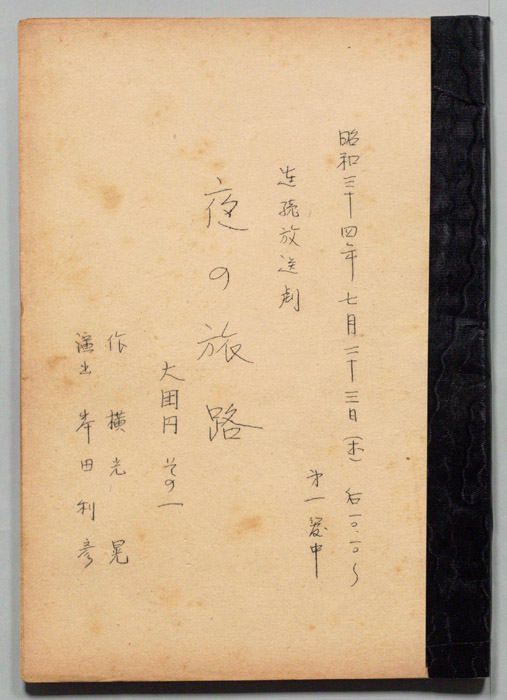 昭和三十四年七月二十三日(木) 后一〇・一〇〜
第一 愛中
連続放送劇
夜の旅路
大団円 その一
作 横光 晃
演出 岸田利彦